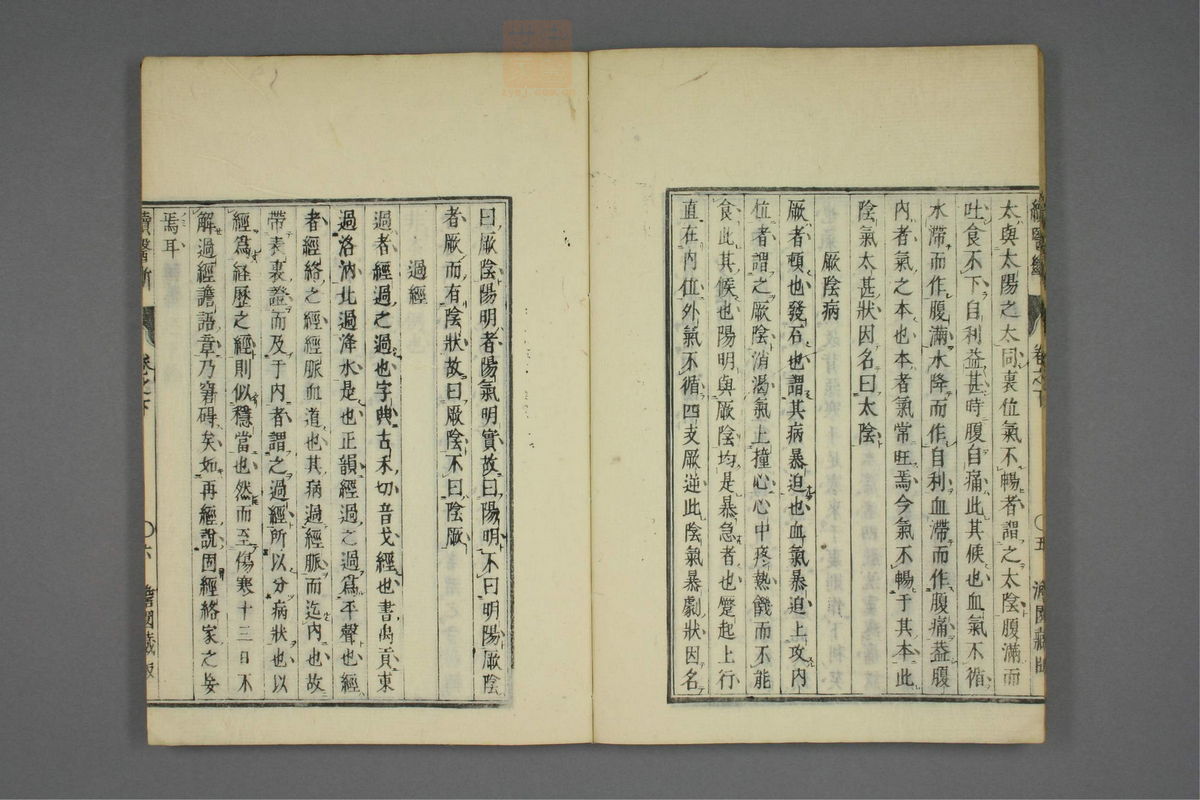 太與太陽之太同裏位氣不暢者謂之太陰腹滿而
吐食不下自利益甚時腹自痛此其候也血氣不循
水滯而作腹滿水降而作自利血滯而作腹痛葢腹
內者氣之本也本者氣常旺焉今氣不暢于其本此
陰氣太甚狀因名曰太陰
厥陰病
厥者頓也發石也謂其病暴迫也血氣暴迫上攻內
位者謂之厥陰消渴氣上撞心心中疼熱饑而不能
食此其候也陽明與厥陰均是暴急者也蹙起上行
直在內位外氣不循四支厥逆此陰氣暴劇狀因名
卷之下
五
曰厥陰陽明者陽氣明實故曰陽明不曰明陽厥陰
者厥而有陰狀故曰厥陰不曰陰厥
過經
過者經過之過也字典古禾切音戈經也書禹貢東
過洛汭北過降水是也正韻經過之過爲平聲也經
者經絡之經經脈血道也其病過經脈而迄內也故
帶表裏證而及于內者謂之過經所以分病狀也以
經爲経歷之經則似穩當也然而至傷寒十三日不
解過經譫語章乃窘碍矣如再經說固經絡家之妄
焉耳
續醫斷
卷之下
六